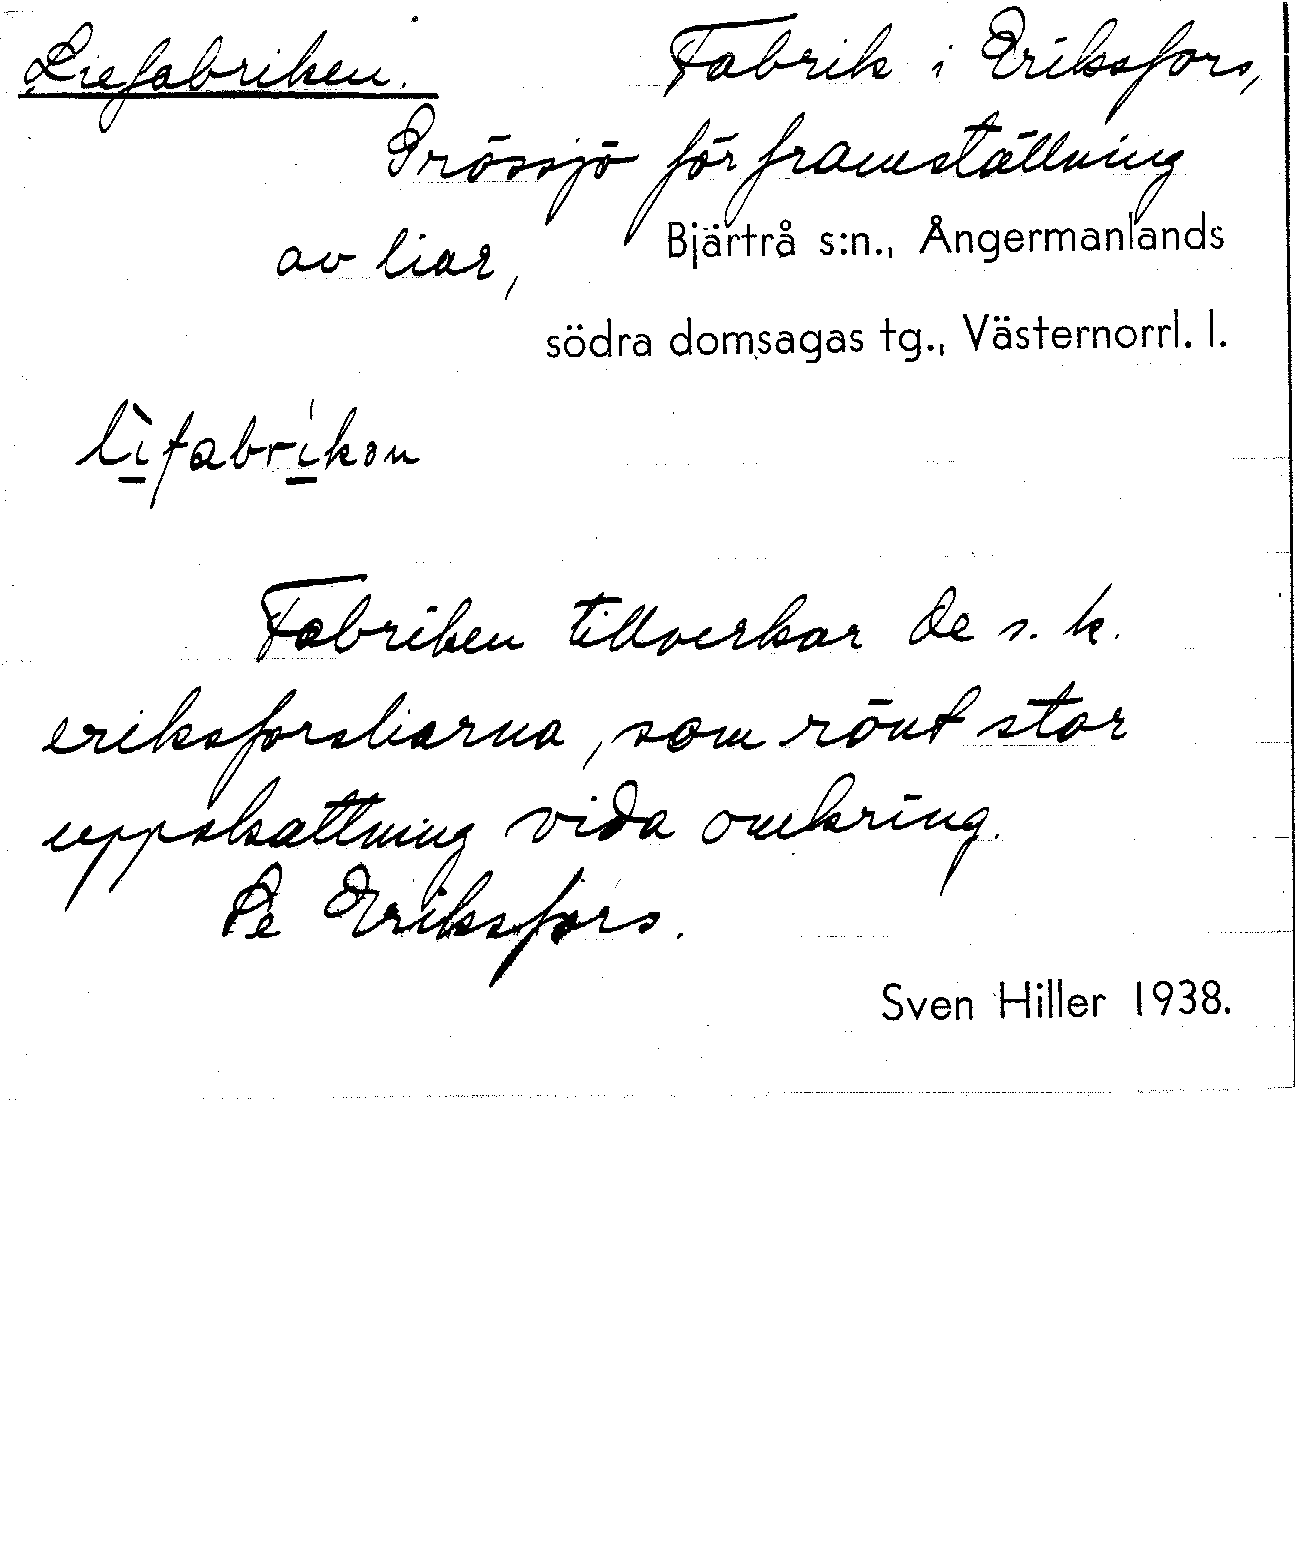 Liefabriken. Fabrik i Eriksfors,
Prössjö för framställning
av liar, Bjärtrå s:n., Ångermanlands
södra domsagas tg., Västernorrl. l.
lìfabrikon
Fabriken tillverkar de s. k.
eriksforsliarna, som rönt stor
uppskattning vida omkring.
Se Eriksfors.
Sven Hiller 1938.